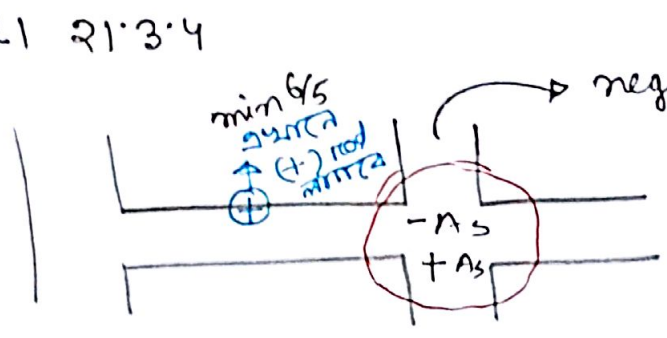 -1 21.3.4
min 6/5
এখানে
(+) rod
লাগবে
neg
- As
+ As